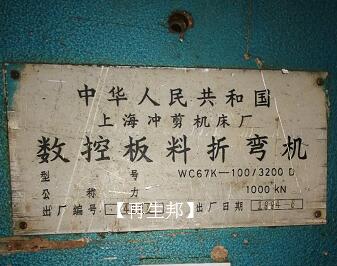 中华人民共和国
上海冲剪机床厂
数控板料折弯机
型 号 WC67K-100/3200 D
公 称 力 1000 kN
出厂编号 【再生邦】 出厂日期 1994-6